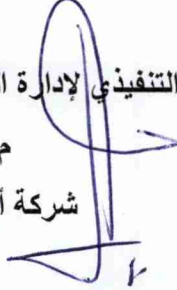 التنفيذي لإدارة ا
م
شركة أ